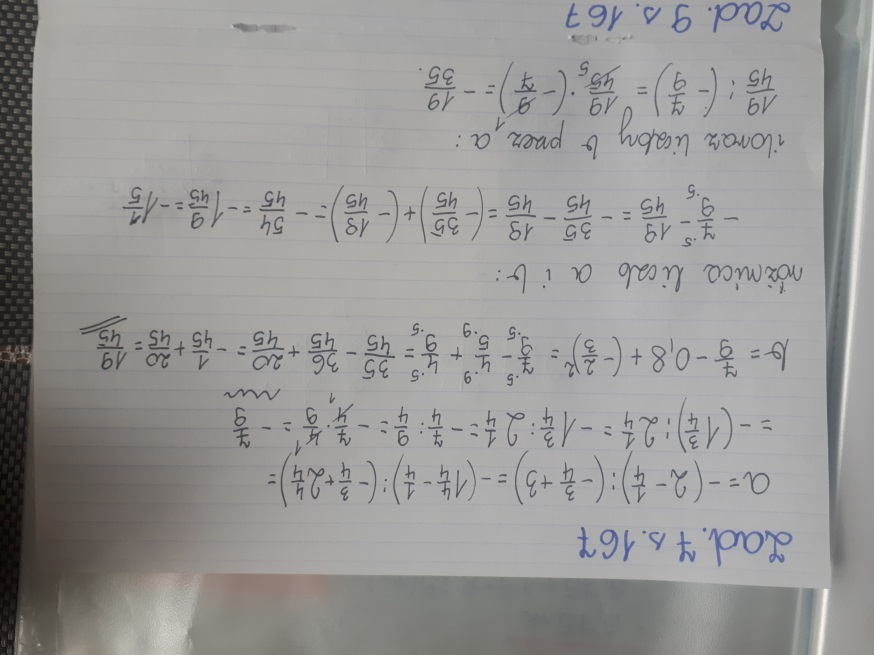 Zad. 7 s. 167
a = -(2 - 1/4) : (-3/4 + 3) = -(1 4/4 - 1/4) : (-3/4 + 2 4/4) =
= -(1 3/4) : 2 1/4 = -1 3/4 : 2 1/4 = -7/4 : 9/4 = -7/4 · 4/9 = -7/9
b = 7/9 - 0,8 + (-2/3)² = 7/9 - 4/5 + 4/9 = 35/45 - 36/45 + 20/45 = -1/45 + 20/45 = 19/45
różnica liczb a i b:
-7/9 - 19/45 = -35/45 - 19/45 = (-35/45) + (-19/45) = -54/45 = -1 9/45 = -1 1/5
iloraz liczby b przez a:
19/45 : (-7/9) = 19/45 · (-9/7) = -19/35.
Zad. 9 s. 167